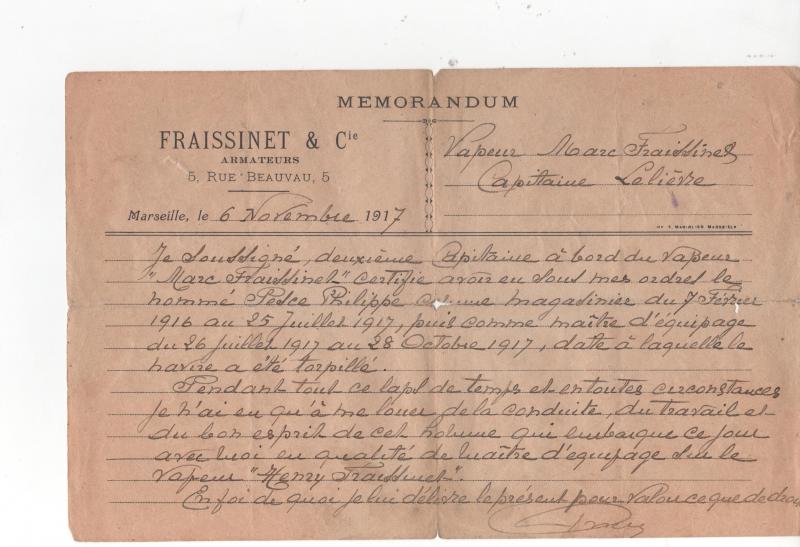 MEMORANDUM
FRAISSINET & Cie
ARMATEURS
5, RUE BEAUVAU, 5
Marseille, le 6 Novembre 1917
Vapeur Marc Fraissinet
Capitaine Lelièvre
Je soussigné, deuxième Capitaine à bord du vapeur
"Marc Fraissinet" certifie avoir eu sous mes ordres le
nommé Pesce Philippe comme magasinier du 7 Février
1916 au 25 Juillet 1917, puis comme maître d'équipage
du 26 Juillet 1917 au 28 Octobre 1917, date à laquelle le
navire a été torpillé.
Pendant tout ce laps de temps et en toutes circonstances
je n'ai eu qu'à me louer de la conduite, du travail et
du bon esprit de cet homme qui embarque ce jour
avec moi en qualité de maître d'équipage sur le
vapeur "Henry Fraissinet".
En foi de quoi je lui délivre le présent pour valoir ce que de droit